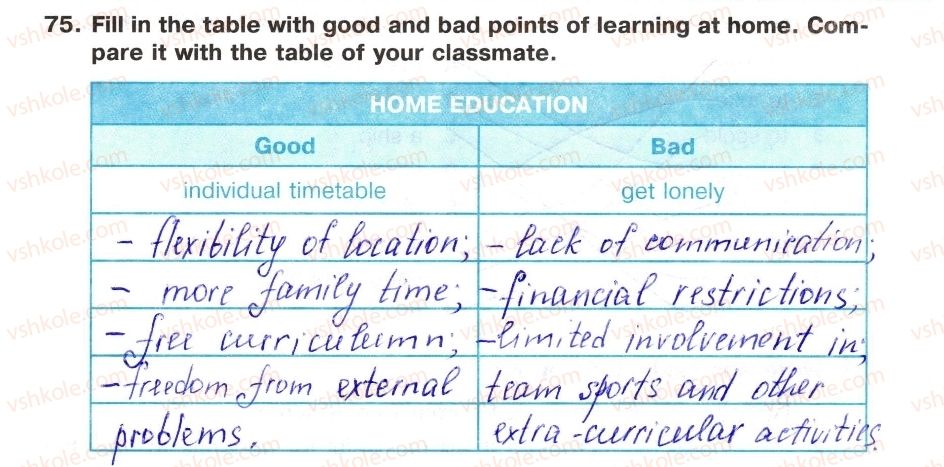 75. Fill in the table with good and bad points of learning at home. Com-
pare it with the table of your classmate.
HOME EDUCATION
Good Bad
individual timetable get lonely
- flexibility of location; - lack of communication;
- more family time; - financial restrictions;
- free curriculumn; - limited involvement in;
- freedom from external team sports and other
problems. extra-curricular activities